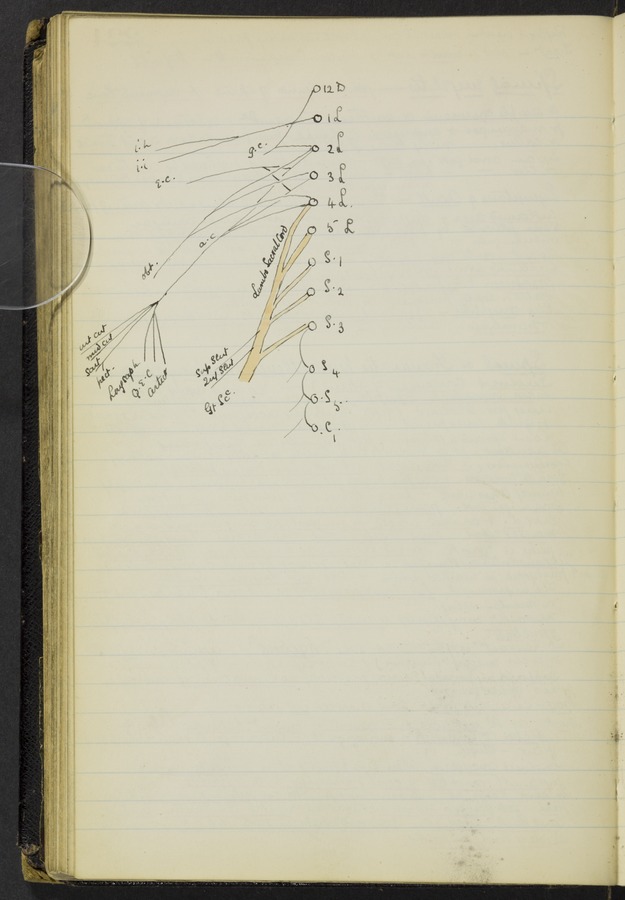 12 D
1 L
i.h
i.i
g.c.
2 L
e.c.
3 L
4 L.
5 L
a.c
obt.
Lumbo Sacral Cord
S. 1
S. 2
S. 3
int cut
mid cut
Sart
pect.
Long saph
Q. E. C
Sup Glut
Inf Glut
Gt Sc
S 4
S 5.
C. 1